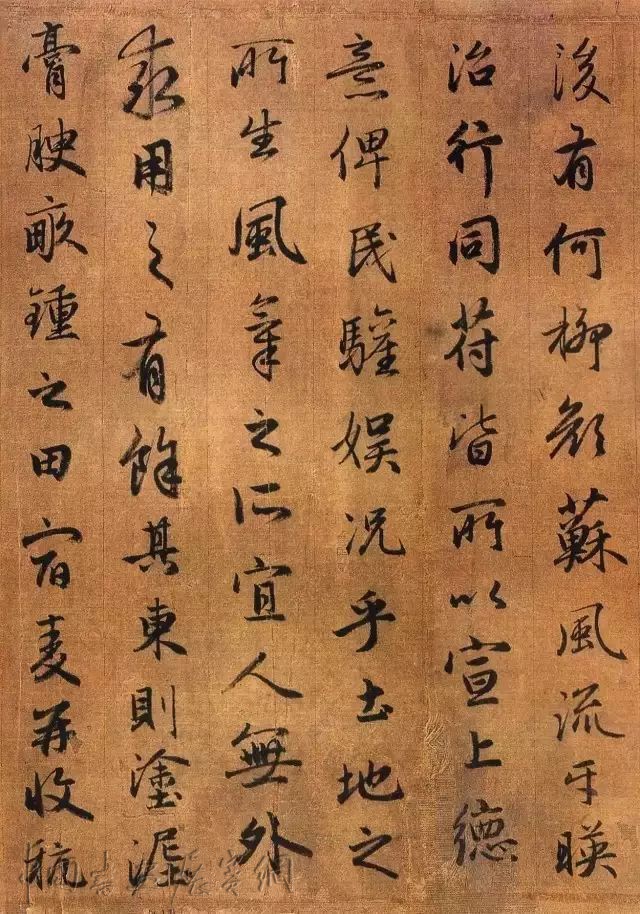 後有何柳顔蘇風流互暎
治行同符皆所以宣上德
意俾民驩娱況乎土地之
所生風氣之所宜人無外
求用之有餘其東則塗泥
膏腴畝鍾之田宿麦再收秔